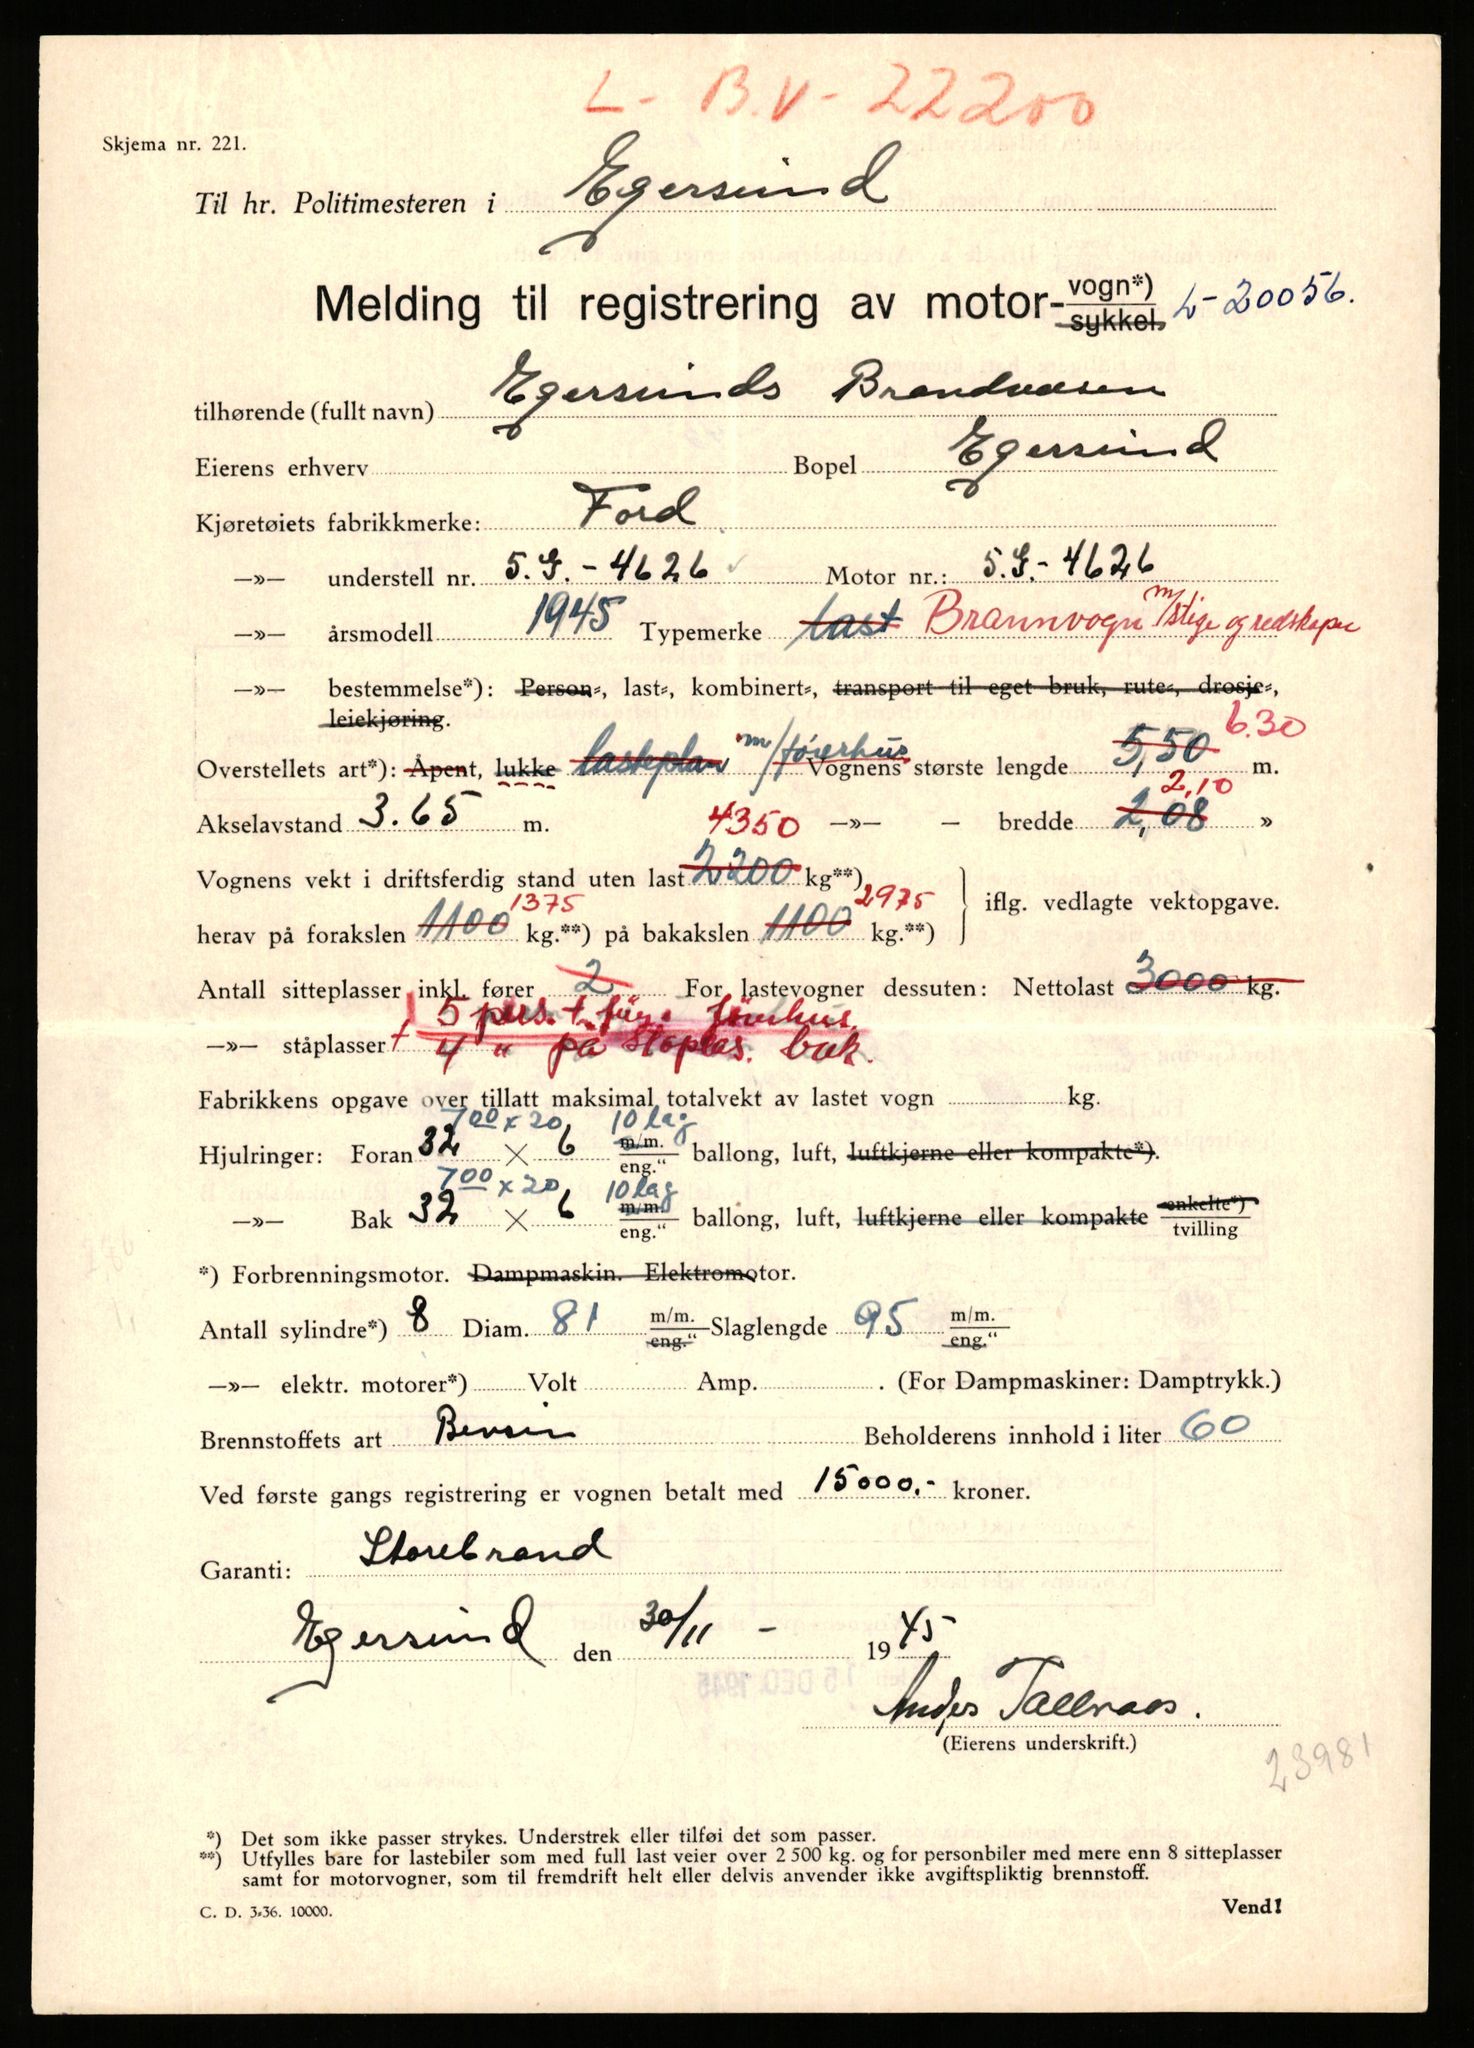 L - B.V - 22200
Skjema nr. 221.
Til hr. Politimesteren i Egersund
Melding til registrering av motor- vogn*) sykkel. L-20056.
tilhørende (fullt navn) Egersunds Brandvæsen
Eierens erhverv Bopel Egersund
Kjøretøiets fabrikkmerke: Ford
—»— understell nr. 5.G.-4626 Motor nr.: 5.G.-4626
—»— årsmodell 1945 Typemerke last Brannvogn m/stige og redskaper
—»— bestemmelse*): Person-, last-, kombinert-, transport til eget bruk, rute-, drosje-,
leiekjøring.
6.30
Overstellets art*): Åpent, lukke lasteplan m/førerhus Vognens største lengde 5,50 m.
2,10
Akselavstand 3.65 m. 4350 —»— — bredde 2,08 »
Vognens vekt i driftsferdig stand uten last 2200 kg**)
1375 2975 iflg. vedlagte vektopgave.
herav på forakslen 1100 kg.**) på bakakslen 1100 kg.**)
Antall sitteplasser inkl. fører 2 For lastevogner dessuten: Nettolast 3000 kg.
5 pers. førerhus.
—»— ståplasser 4 " på ståplas. bak.
Fabrikkens opgave over tillatt maksimal totalvekt av lastet vogn kg.
7.00 x 20 10 lag
Hjulringer: Foran 32 × 6 m/m. eng.“ ballong, luft, luftkjerne eller kompakte*).
7.00 x 20 10 lag
—»— Bak 32 × 6 m/m. eng.“ ballong, luft, luftkjerne eller kompakte enkelte*) tvilling
*) Forbrenningsmotor. Dampmaskin. Elektromotor.
Antall sylindre*) 8 Diam. 81 m/m. eng.“ Slaglengde 95 m/m. eng.“
—»— elektr. motorer*) Volt Amp. . (For Dampmaskiner: Damptrykk.)
Brennstoffets art Bensin Beholderens innhold i liter 60
Ved første gangs registrering er vognen betalt med 15000,- kroner.
Garanti: Storebrand
Egersund den 30/11 - 1945
Anders Tallraas.
(Eierens underskrift.)
23981
*) Det som ikke passer strykes. Understrek eller tilføi det som passer.
**) Utfylles bare for lastebiler som med full last veier over 2 500 kg. og for personbiler med mere enn 8 sitteplasser
samt for motorvogner, som til fremdrift helt eller delvis anvender ikke avgiftspliktig brennstoff.
C. D. 3-36. 10000. Vend!